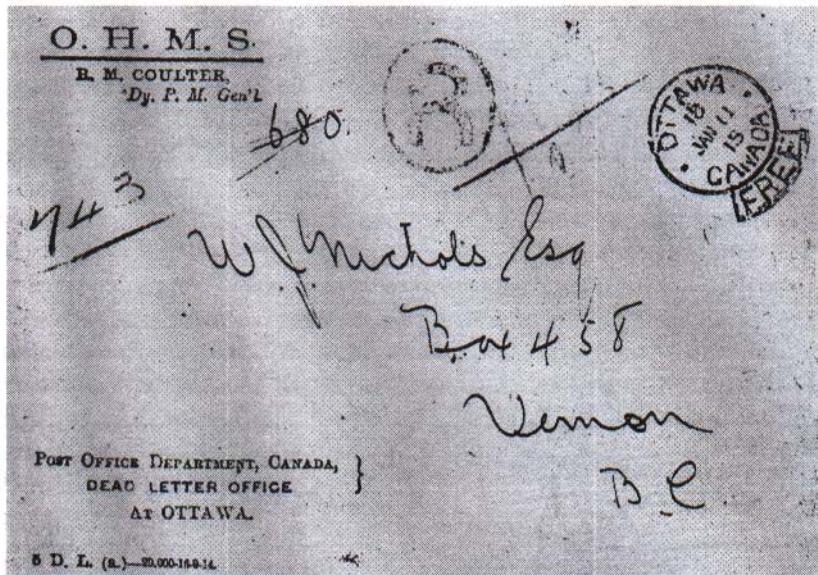 O. H. M. S.
R. M. COULTER,
Dy. P. M. Gen'l
680
R
OTTAWA
18
JAN 11
15
CANADA
FREE
743
W J Nichols Esq
Box 458
Vernon
B.C
POST OFFICE DEPARTMENT, CANADA,
DEAD LETTER OFFICE
AT OTTAWA.
5 D. L. (a.)—20,000-16-9-14.